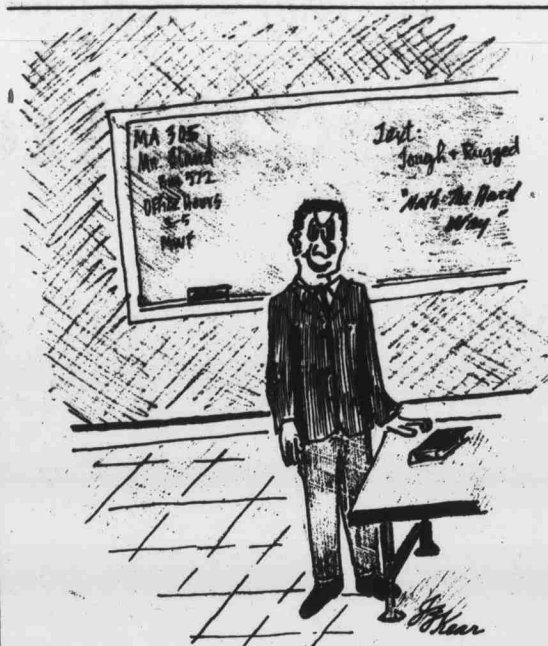 MA 305
Mr. Bland
Rm 572
Office Hours
2-5
MWF
Text:
Tough + Rugged
"Math-The Hard
Way"
Kear